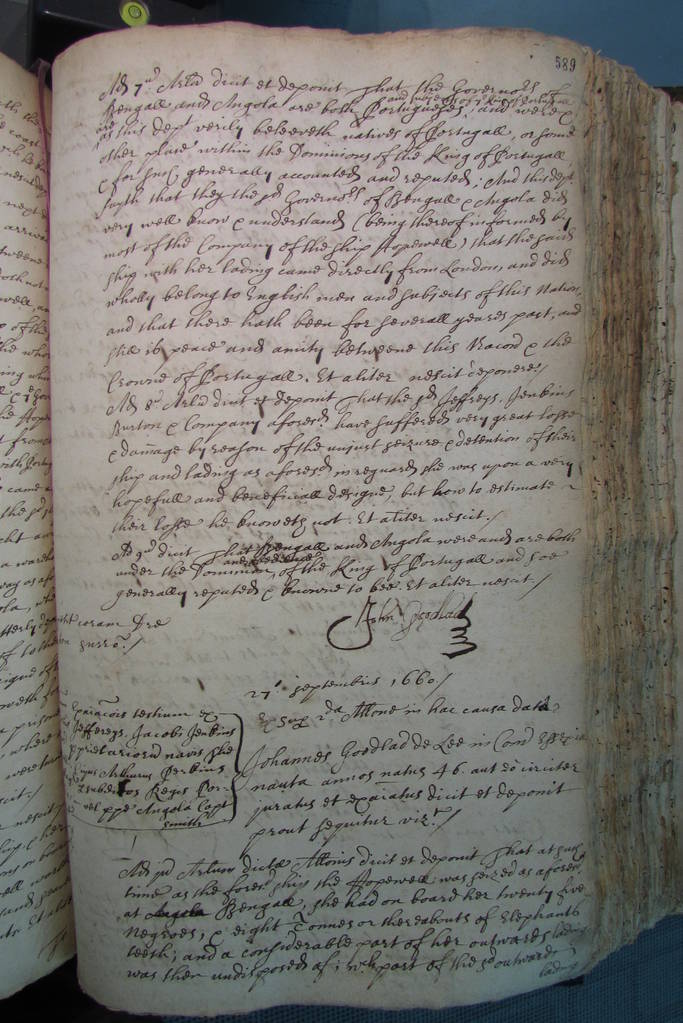 589
Ad 7um Arlum dicit et deponit That the Governors of
Bengall and Angola are both Portugueses, and were &
are as this depont verily beleeveth natives of Portugall, or some
other place within the Dominions of the King of Portugall
& for such generally accounted and reputed. And this dept
sayth that they the sd Governors of Bengall & Angola did
very well know & understand (being thereof informed by
most of the Company of the ship Hopewell) that the said
ship with her lading came directly from London, and did
wholly belong to English men and subjects of this Nation,
and that there hath been for severall yeares past, and
still is peace and amity betweene this Nacon & the
Crowne of Portugall. Et aliter nescit deponere./
Ad 8um Arlum dicit et deponit That the sd Jeffreys, Jenkins
Burton & Company aforesd have suffered very great losse
& dammage by reason of the unjust seizure & detention of their
ship and lading as aforesd in reguard she was upon a very
hopefull and beneficiall designe, but how to estimate
their losse he knoweth not. Et aliter nescit./
Ad 9um dicit That Bengall and Angola were and are both
under the Dominion of the King of Portugall and soe
generally reputed & knowne to bee. Et aliter nescit./
coram Dre
John Goodlad
27o septembris 1660./
Ex sup 2da Allone in hac causa data
testium ex
Jeffreys, Jacobi Jenkins
navis the
Arthurus Perkins
subditos Regis Por
Angola Capt
Smith
Johannes Goodlad de Lee in Com Essexiæ
nauta annos natus 46. aut eo circiter
juratus et examinatus dicit et deponit
prout sequitur vizt./
Ad primum Arlum dictæ Allonis dicit et deponit That at such
time as the foresd ship the Hopewell was seized as aforesd
at Angola Bengall, she had on board her twenty five
Negroes, & eight Tonnes or thereabouts of Elephants
teeth, and a considerable part of her outwards lading
was then undisposed of; wch part of the sd outward
lading